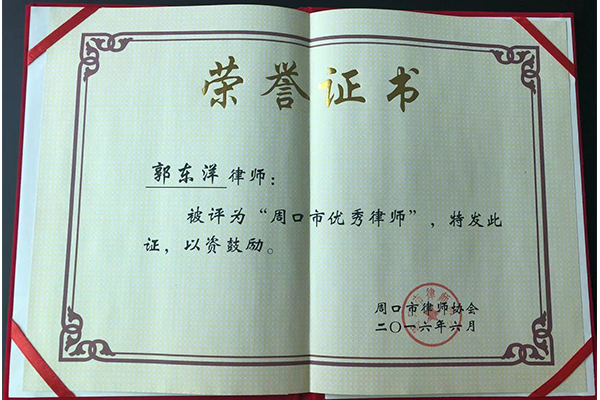 荣誉证书
郭东洋律师：
被评为“周口市优秀律师”，特发此
证，以资鼓励。
周口市律师协会
二〇一六年六月